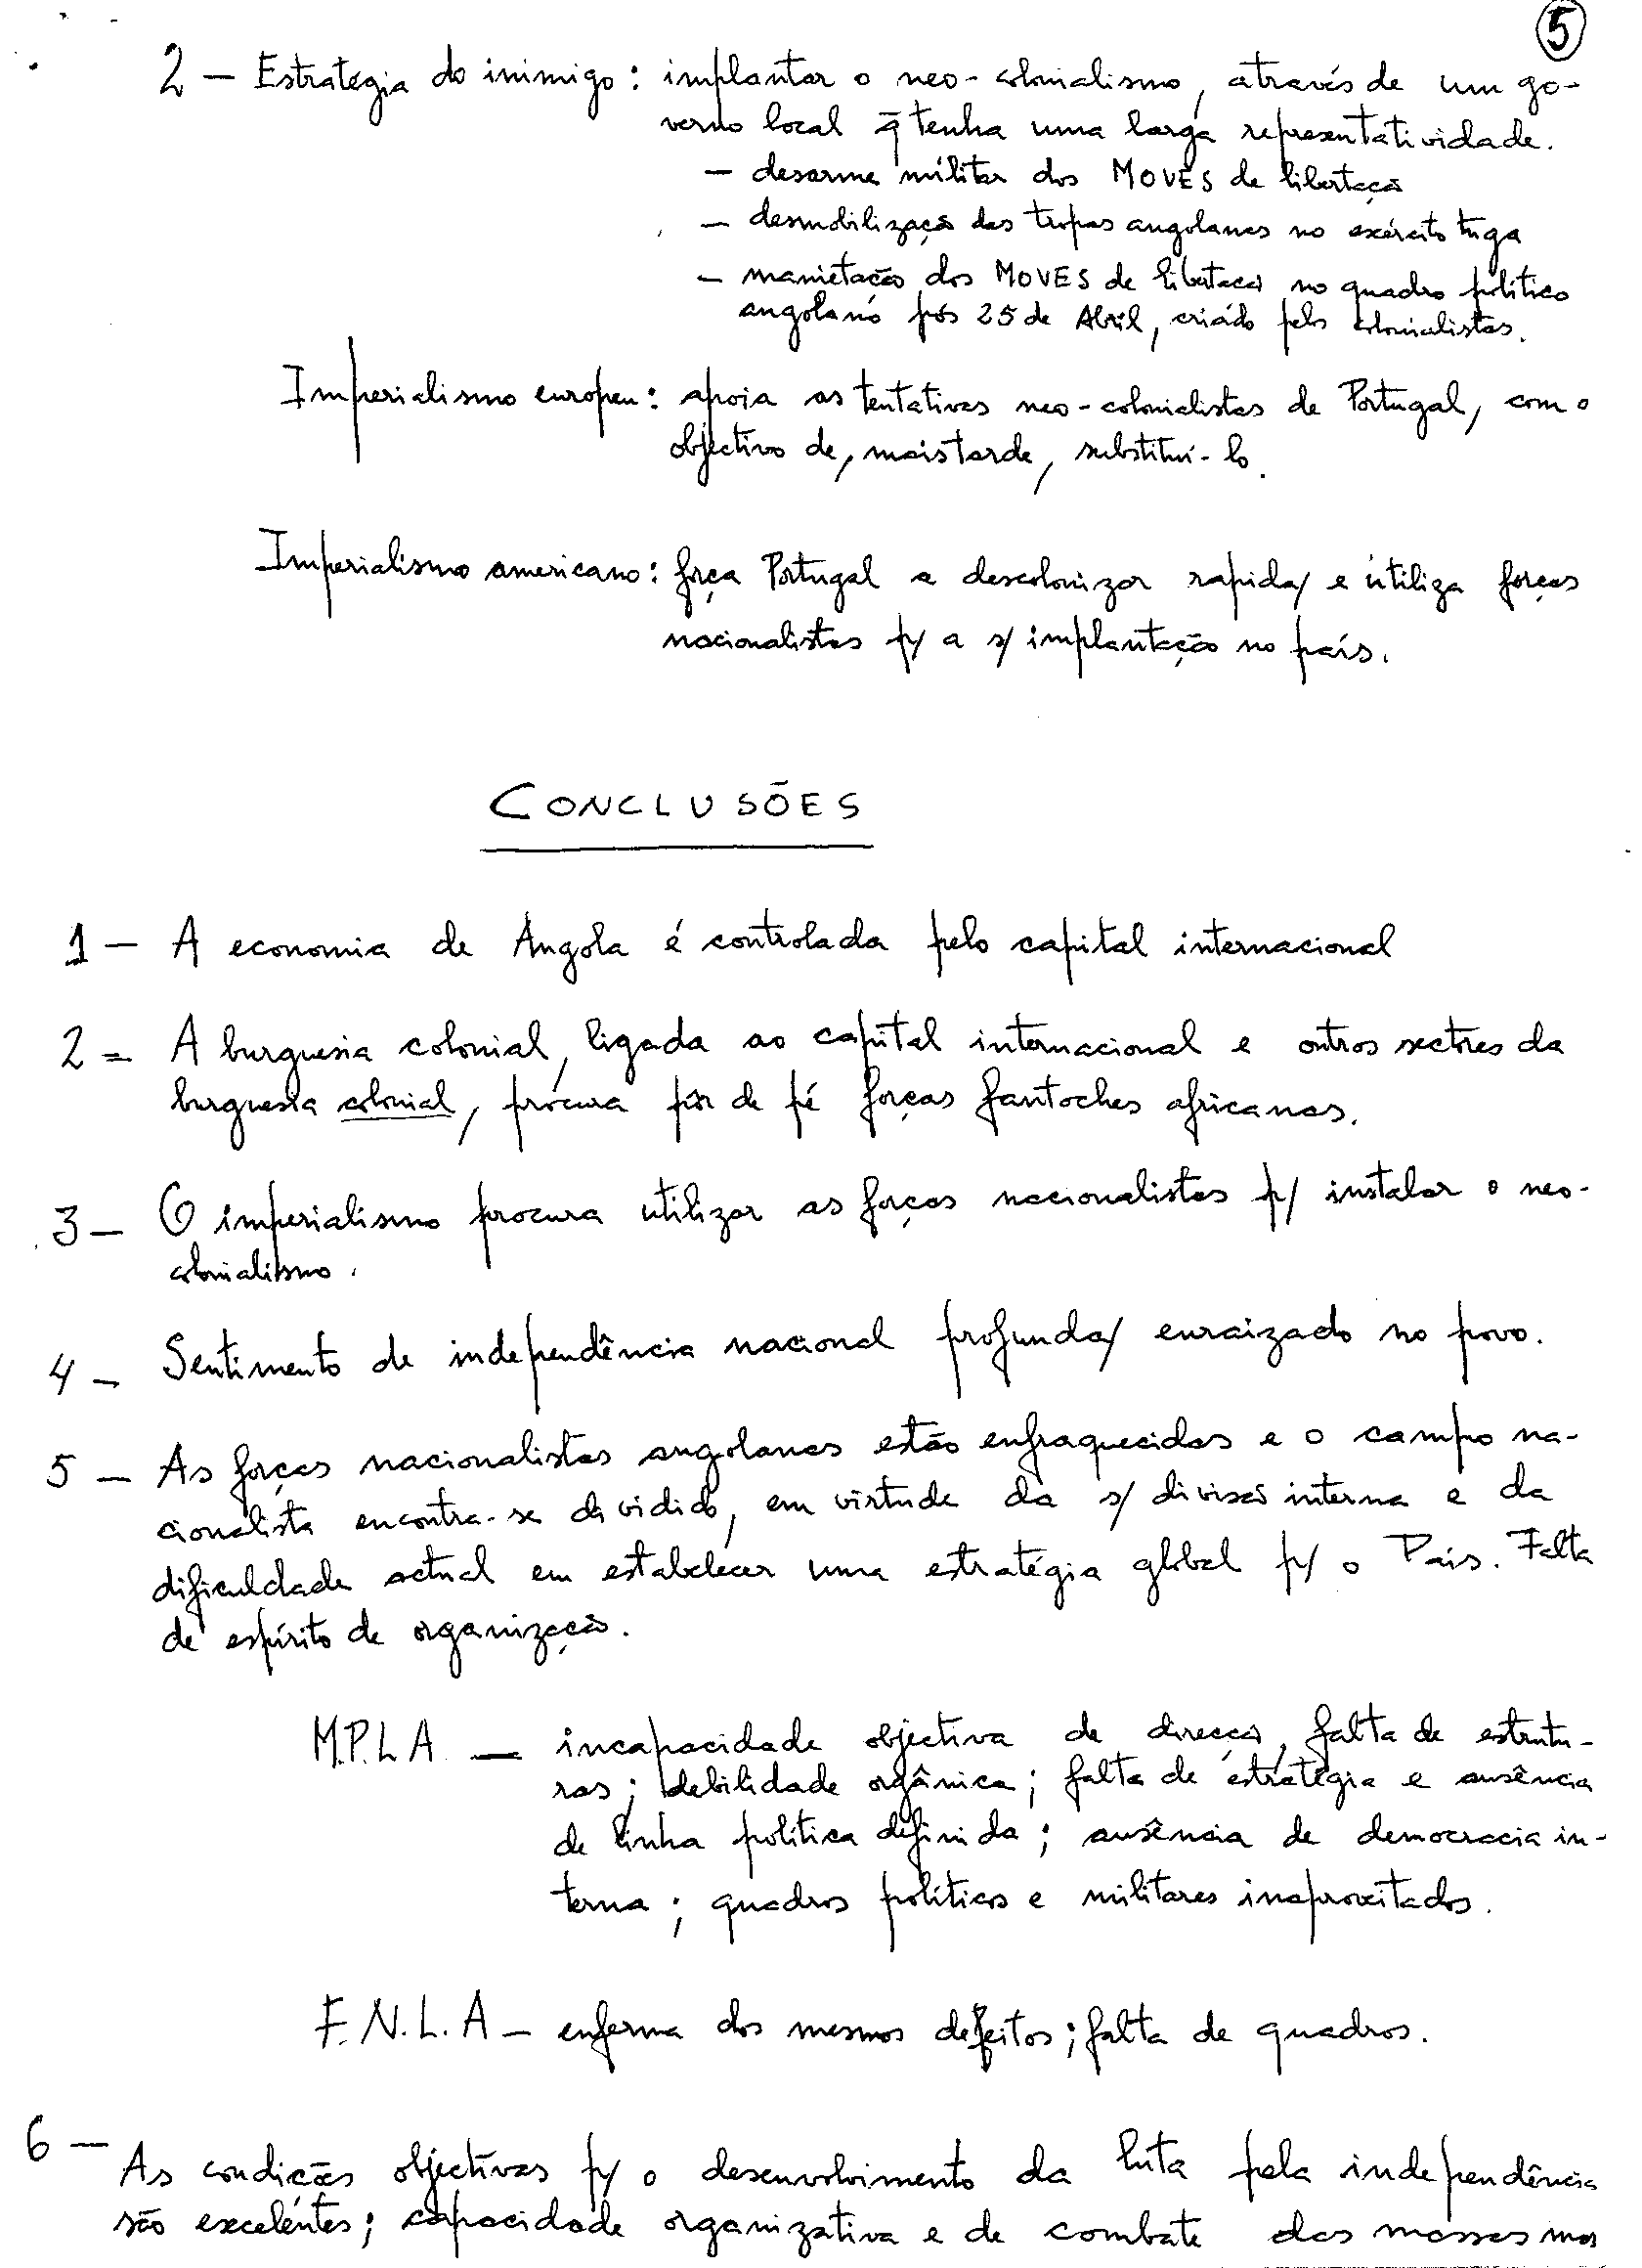 5
2 — Estratégia do inimigo: implantar o neo-colonialismo, através de um go-
verno local q̄ tenha uma larga representatividade.
— desarme militar dos MOVES de libertação
— desmobilização das tropas angolanas no exército tuga
— manietação dos MOVES de libertação no quadro político
angolano pós 25 de Abril, criado pelos colonialistas.
Imperialismo europeu: apoia as tentativas neo-colonialistas de Portugal, com o
objectivo de, mais tarde, substituí-lo.
Imperialismo americano: força Portugal a descolonizar rapida/ e utiliza forças
nacionalistas p/ a s/ implantação no país.
CONCLUSÕES
1 — A economia de Angola é controlada pelo capital internacional
2 = A burguesia colonial, ligada ao capital internacional e outros sectores da
burguesia colonial, procura pôr de pé forças fantoches africanas.
3 — O imperialismo procura utilizar as forças nacionalistas p/ instalar o neo-
colonialismo.
4 — Sentimento de independência nacional profunda/ enraizado no povo.
5 — As forças nacionalistas angolanas estão enfraquecidas e o campo na-
cionalista encontra-se dividido, em virtude da s/ divisão interna e da
dificuldade actual em estabelecer uma estratégia global p/ o País. Falta
de espírito de organização.
M.P.L.A. — incapacidade objectiva de direcção, falta de estrutu-
ras; debilidade orgânica; falta de estratégia e ausência
de linha política definida; ausência de democracia in-
terna; quadros políticos e militares inaproveitados.
F.N.L.A — enferma dos mesmos defeitos; falta de quadros.
6 — As condições objectivas p/ o desenvolvimento da luta pela independência
são excelentes; capacidade organizativa e de combate das massas nos